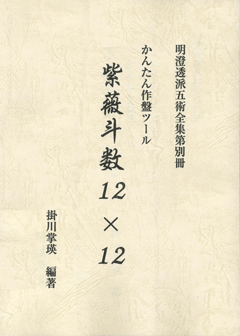 明澄透派五術全集第別冊
かんたん作盤ツール
紫薇斗数
12
×
12
掛川掌瑛 編著